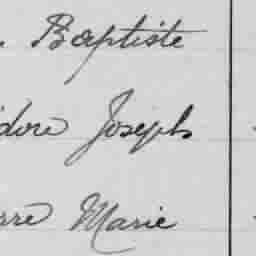 . Baptiste
idore Joseph
rre Marie